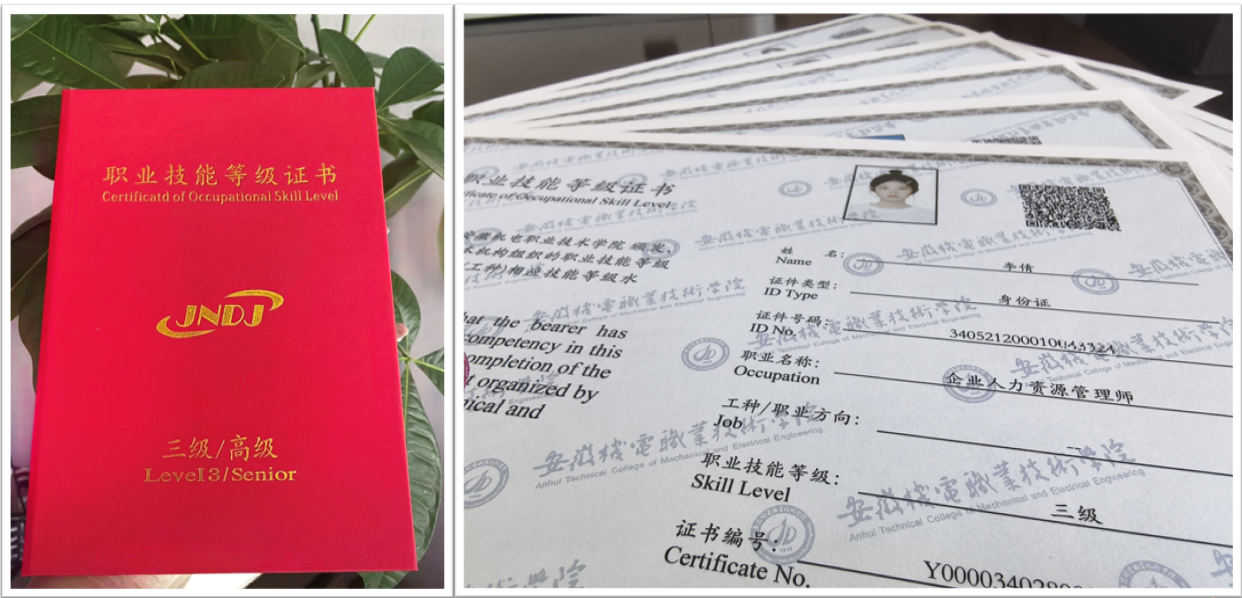 职业技能等级证书
Certificatd of Occupational Skill Level
JNDJ
三级/高级
Level3/Senior
职业技能等级证书
of Occupational Skill Level
机电职业技术学院 颁发,
机构组织的职业技能等级
(工种)相应技能等级水
that the bearer has
competency in this
completion of the
organized by
and
姓 名:
Name
李倩
证件类型:
ID Type
身份证
证件号码:
ID No.
职业名称:
Occupation
企业人力资源管理师
工种/职业方向:
Job
--
职业技能等级:
Skill Level
三级
证书编号:
Certificate No.
安徽機電職業技術學院
Anhui Technical College of Mechanical and Electrical Engineering